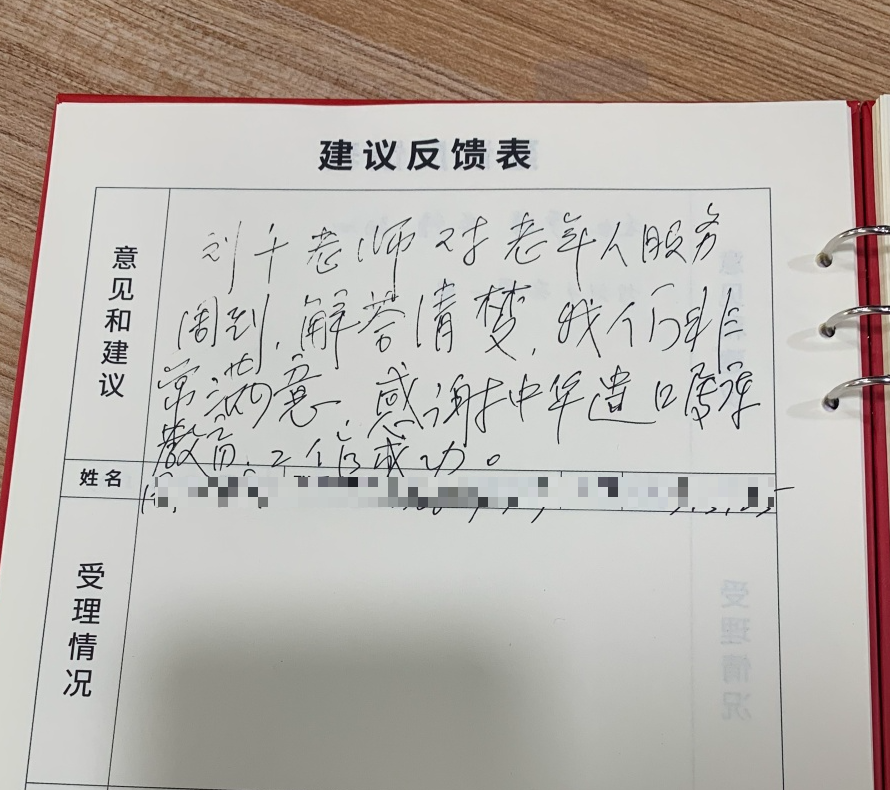 建议反馈表
意见和建议
刘千老师对老年人服务
周到，解答清楚，我们非
常满意，感谢中华遗嘱库
教育，工作成功。
姓名
受理情况